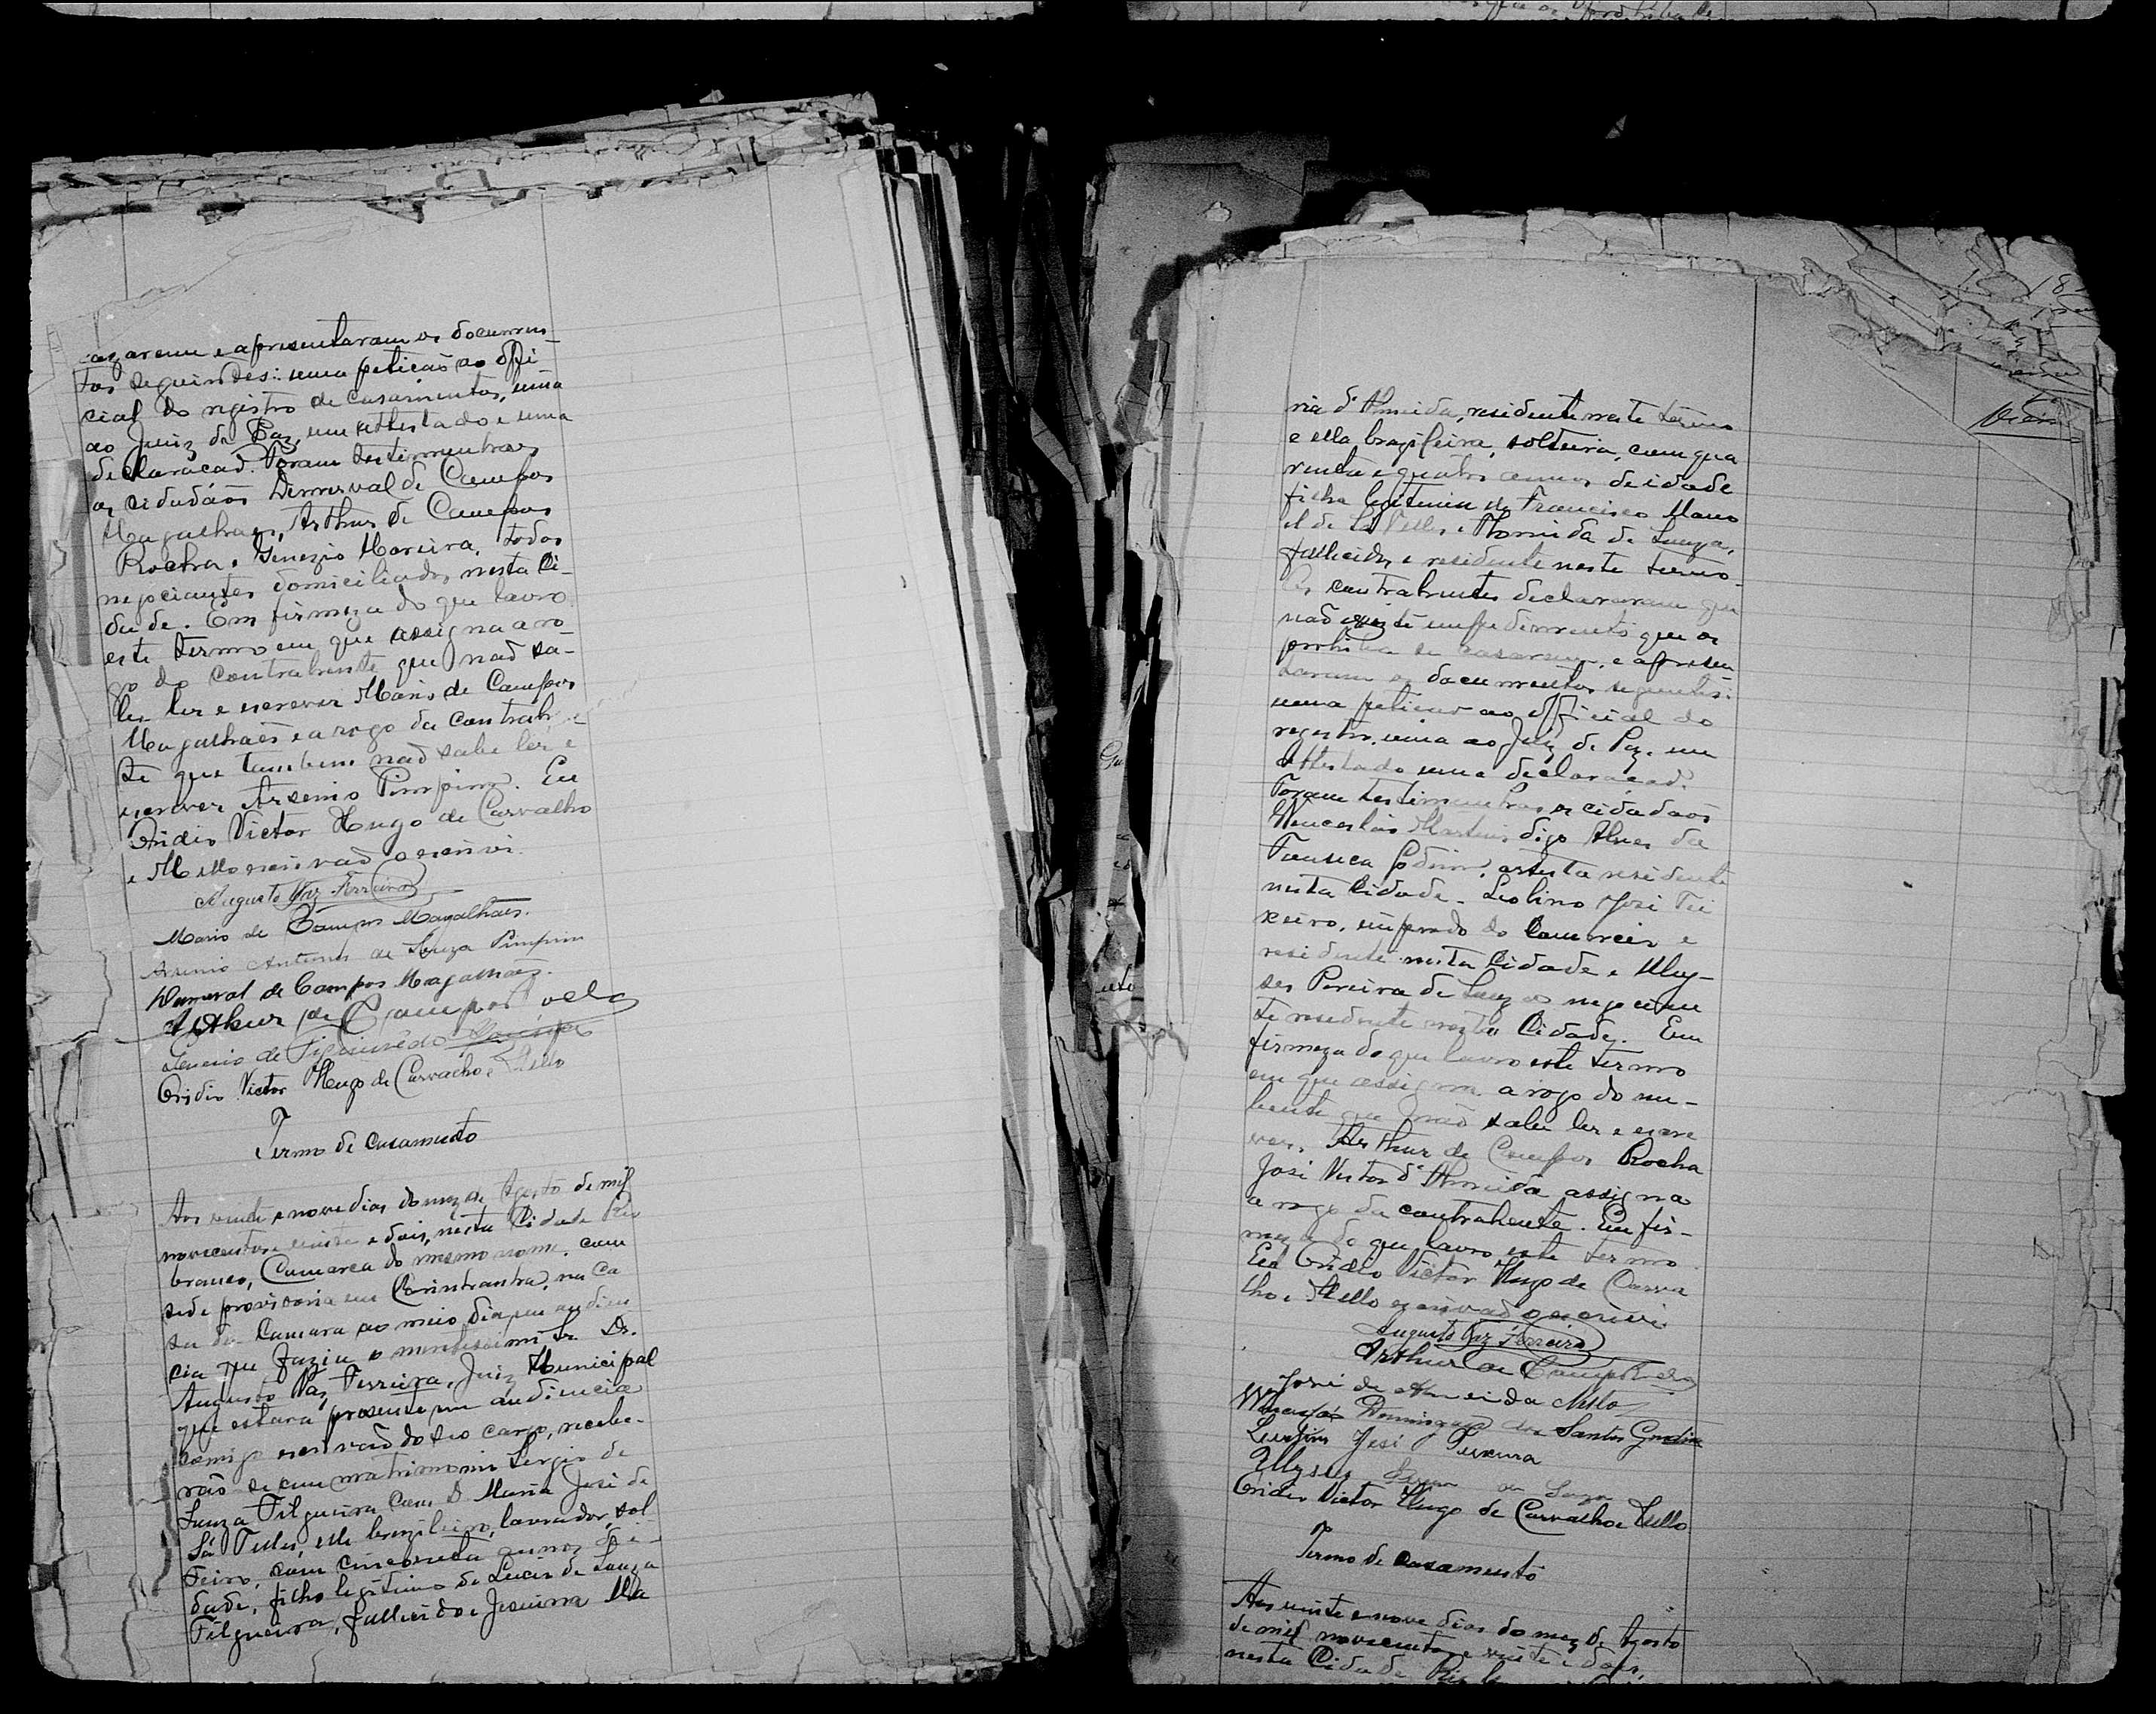 casarem e apresentaram os documen
tos seguintes: uma petição ao offi-
cial do registro de casamentos, uma
ao Juiz de Paz, um attestado e uma
declaração. Foram testimunhas
os cidadãos Demerval de Campos
Magalhaes, Arthur de Campos
Rocha e Genezio Moreira, todos
negociantes domiciliados nesta Ci-
dade. Em firmeza do que lavro
este termo em que assigna a ro-
go do contrahente que não sa-
be ler e escrever Mario de Campos
Magalhães e a rogo da contrahen
te que tambem não sabe ler e
escrever Arsenio Pimpim. Eu
Ovidio Victor Hugo de Carvalho
e Mello escrivão o escrivi.
Augusto Vaz Ferreira
Mario de Campos Magalhães.
Arsenio Antonio de Souza Pimpim
Demerval de Campos Magalhães.
Arthur de Campos
Genesio de Figueirêdo
Ovidio Victor Hugo de Carvalho e Mello
Termo de casamento
Aos vinte e nove dias do mez de Agosto de mil
novecentos e vinte e dois, nesta Cidade Rio
branco, Comarca do mesmo nome, com
sede provisoria em na Ca
sa da Camara ao meio dia em audien
cia que fazia o Dr.
Augusto Vaz Ferreira, Juiz Municipal
que estava presente em audiencia
comigo escrivão do seo cargo, recebe-
rão se em matrimonio Sergio de
Souza Filgueira com D. Maria José de
Sá Telles, elle brazileiro, lavrador, sol
teiro, com cincoenta annos de i-
dade, filho legitimo de Lucio de Souza
Filgueira, fallecido e Jesuina Ma
ria d'Almeida, residente neste termo
e ella brazileira, solteira, com qua
renta e quatro annos de idade
filha legitima de Francisco Mano
el de Sá Telles e de Souza,
fallecidos e residente neste termo.
Os contrahentes declararam que
não existe impedimento que os
prohiba de casarem, e apresen
taram os documentos seguintes:
uma petição ao official do
registro, uma ao Juiz de Paz, um
attestado uma declaração.
Foram testimunhas os cidadãos
Wencesláo Martins digo Alves da
Fonseca Godim, artista residente
nesta Cidade. Leolino José Tei
xeira, empregado do Comercio e
residente nesta Cidade e Ulys-
ses Pereira de Souza negocian
te residente nesta Cidade. Em
firmeza do que lavro este termo
em que assigna a rogo do nu-
bente que não sabe ler e escre
ver, Arthur de Campos Rocha
José Victor d'Almeida assigna
a rogo da contrahente. Em fir-
meza do que lavro este termo
Eu Ovidio Victor Hugo de Carva
lho e Mello escrivão o escrivi
Augusto Vaz Ferreira
Arthur de Campos
José de Almeida Mello
Wencesláo Domingues dos Santos Gondim
José Teixeira
Ulysses de Souza
Ovidio Victor Hugo de Carvalho e Mello
Termo de casamento
Aos vinte e nove dias do mez de Agosto
de mil novecentos e vinte e dois,
nesta Cidade Rio